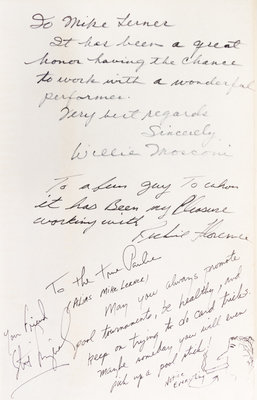 To Mike Lerner
It has been a great
honor having the chance
to work with a wonderful
performer.
Very best regards
Sincerely
Willie Mosconi
To a fun guy To whom
it has Been my Pleasure
working with
Richie Florence
To the true Paula
(Alias Mike Lerner)
May you always promote
pool tournaments, be healthy, and
keep on trying to do card tricks.
Maybe someday you will even
pick up a pool stick!
Your Friend